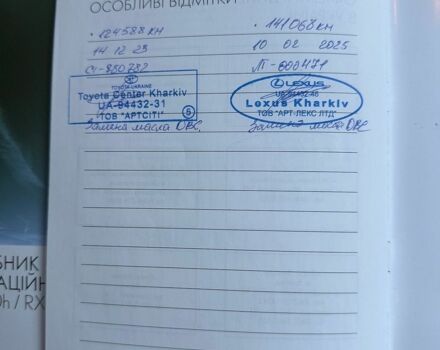 ОСОБЛИВІ ВІДМІТКИ
• 124588 км
14 12 23
СЧ-880782
TOYOTA UKRAINE
Toyota Center Kharkiv
UA-94432-31
ТОВ "АРТСІТІ"
5
Заміна масла ДВС
• 141068 км
10 02 2025
ЛТ-600471
LEXUS
Lexus Kharkiv
ТОВ "АРТ-ЛЕКС ЛТД"
Заміна масла ДВС
БНИК
АЦІЙН
0h / RX